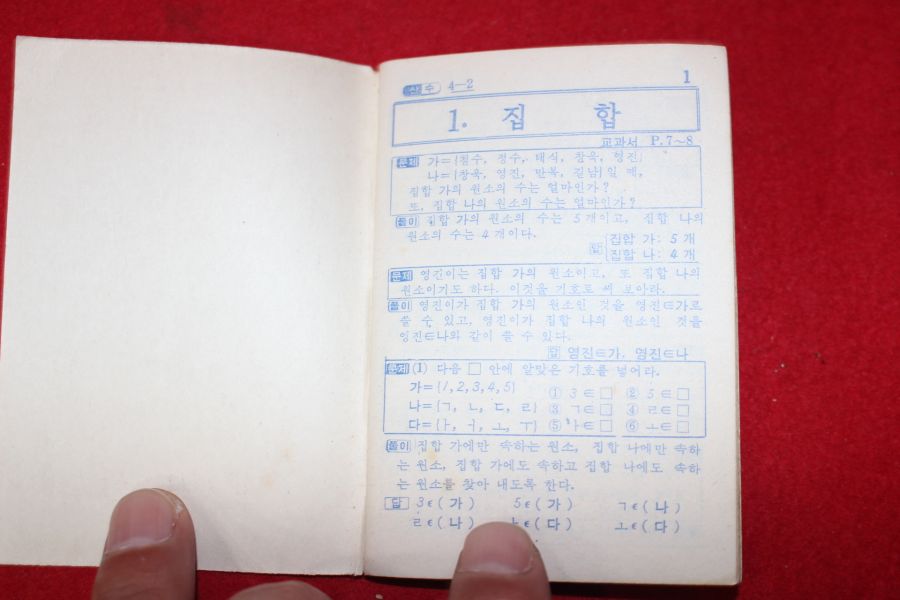 산수 4-2
1
1. 집 합
교과서 P.7~8
문제 가={철수, 정수, 태식, 창욱, 영진}
나={창욱, 영진, 만복, 길남}일 때,
집합 가의 원소의 수는 얼마인가?
또, 집합 나의 원소의 수는 얼마인가?
풀이 집합 가의 원소의 수는 5개이고, 집합 나의
원소의 수는 4개이다.
답 집합 가: 5개
집합 나: 4개
문제 영진이는 집합 가의 원소이고, 또 집합 나의
원소이기도 하다. 이것을 기호로 써 보아라.
풀이 영진이가 집합 가의 원소인 것을 영진∈가로
쓸 수 있고, 영진이가 집합 나의 원소인 것을
영진∈나와 같이 쓸 수 있다.
답 영진∈가, 영진∈나
문제 (1) 다음 □ 안에 알맞은 기호를 넣어라.
가={1,2,3,4,5} ① 3∈□ ② 5∈□
나={ㄱ, ㄴ, ㄷ, ㄹ} ③ ㄱ∈□ ④ ㄹ∈□
다={ㅏ, ㅓ, ㅗ, ㅜ} ⑤ ㅏ∈□ ⑥ ㅗ∈□
풀이 집합 가에만 속하는 원소, 집합 나에만 속하
는 원소, 집합 가에도 속하고 집합 나에도 속하
는 원소를 찾아 내도록 한다.
답 3∈(가) 5∈(가) ㄱ∈(나)
ㄹ∈(나) ∈(다) ㅗ∈(다)